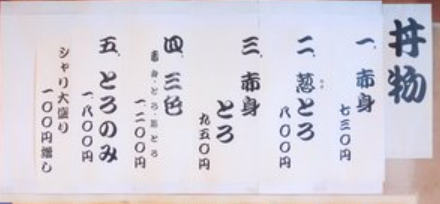 丼物
一、赤身
七三〇円
二、葱とろ
八〇〇円
三、赤身
とろ
九五〇円
四、三色
赤身・とろ・葱とろ
一二〇〇円
五、とろのみ
一、八〇〇円
シャリ大盛り
一〇〇円増し